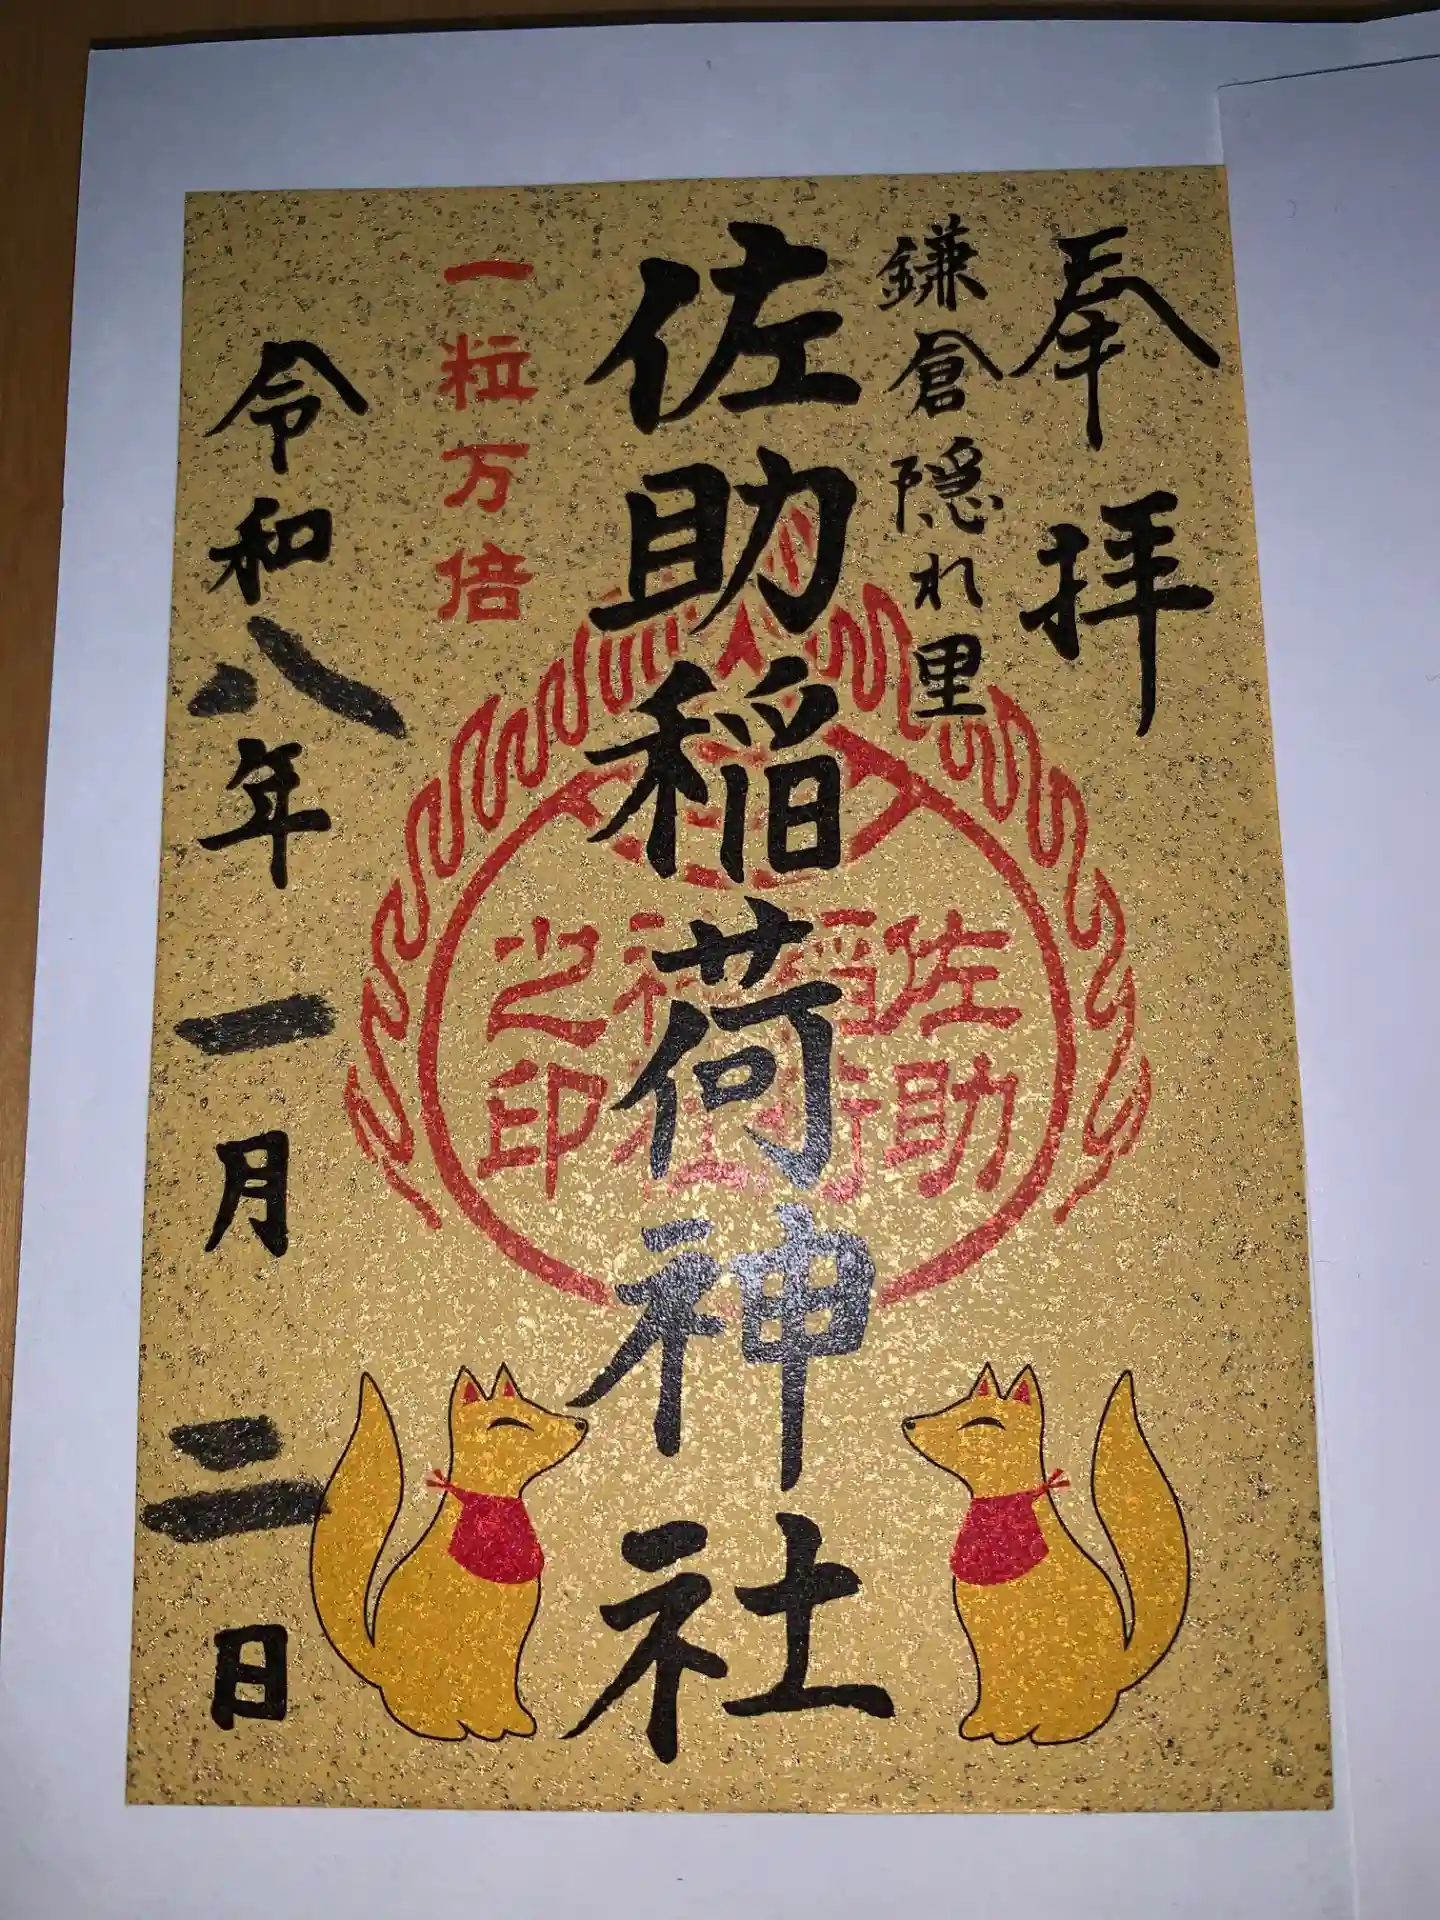 奉拝
鎌倉隠れ里
佐助稲荷神社
佐助
稲荷
神社
之印
一粒万倍
令和八年一月二日